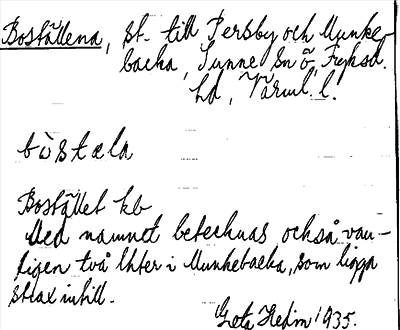 Boställena, st. till Persby och Munke-
backa, Sunne sn ö, Fryksd.
hd, Värml. l.
bòstæla
Bostället kb
Med namnet betecknas också van-
ligen två lhter i Munkebacka, som ligga
strax intill.
Greta Hedin 1935.